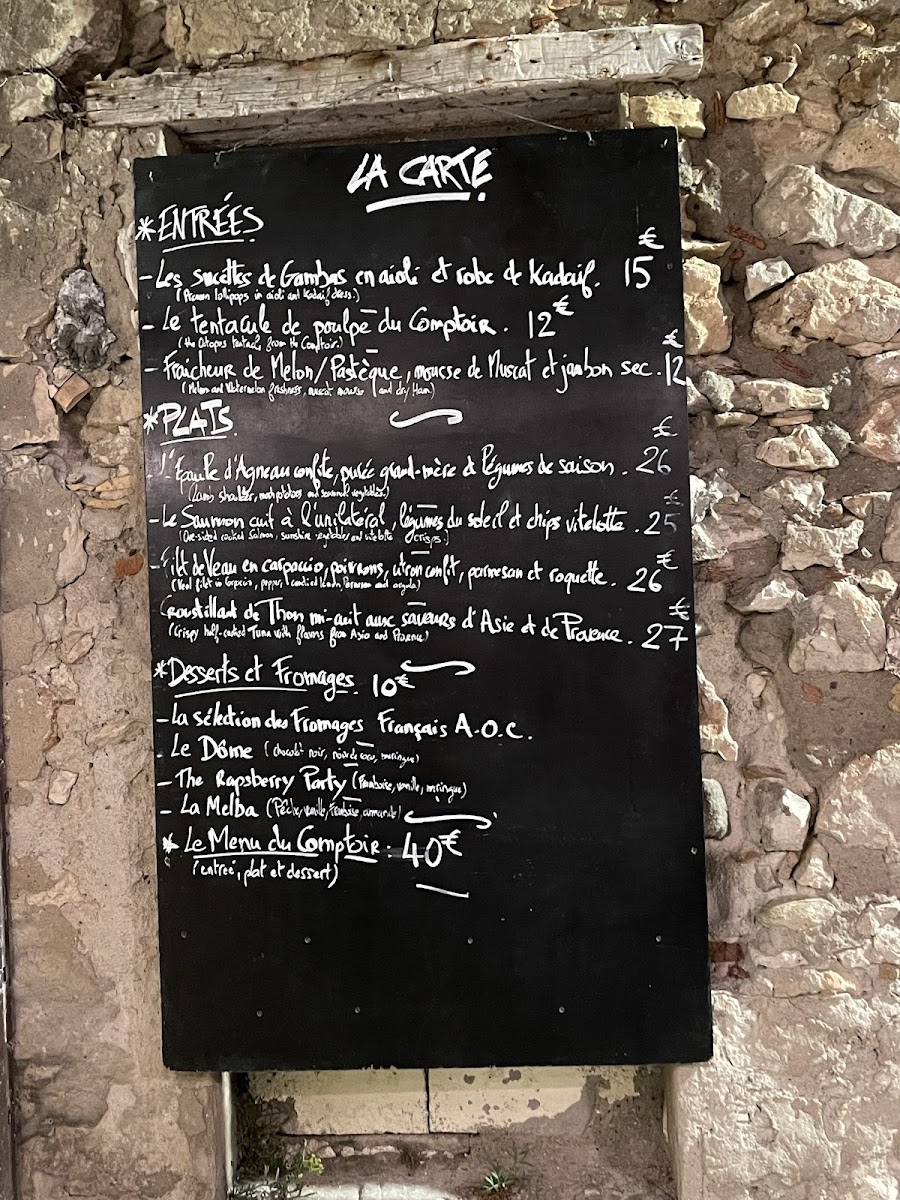 LA CARTE
* ENTRÉES
- Les sucettes de Gambas en aïoli et robe de Kadaïf. 15€
(Prawn lollipops in aioli and kadaif dress.)
- Le tentacule de poulpe du Comptoir. 12€
(the Octopus tentacle from the Comptoir.)
- Fraîcheur de Melon/Pastèque, mousse de Muscat et jambon sec. 12€
(Melon and Watermelon freshness, muscat mousse and dry Ham)
* PLATS
- L'Epaule d'Agneau confite, purée grand-mère et légumes de saison. 26€
(Lamb shoulder, mash potatoes and seasonal vegetables.)
- Le Saumon cuit à l'unilatéral, légumes du soleil et chips vitelotte. 25€
(One-sided cooked Salmon, sunshine vegetables and vitelotte crisps.)
- Filet de Veau en carpaccio, poivrons, citron confit, parmesan et roquette. 26€
(Veal filet in Carpaccio, pepper, candied lemon, Parmesan and arugula)
Croustillant de Thon mi-cuit aux saveurs d'Asie et de Provence. 27€
(Crispy half-cooked Tuna with flavors from Asia and Provence)
* Desserts et Fromages 10€
- La sélection des Fromages Français A.O.C.
- Le Dôme (chocolat noir, noix de coco, meringue)
- The Rapsberry Party (Framboise, vanille, meringue)
- La Melba (Pêche, vanille, Framboise, amande)
* Le Menu du Comptoir : 40€
(entrée, plat et dessert)